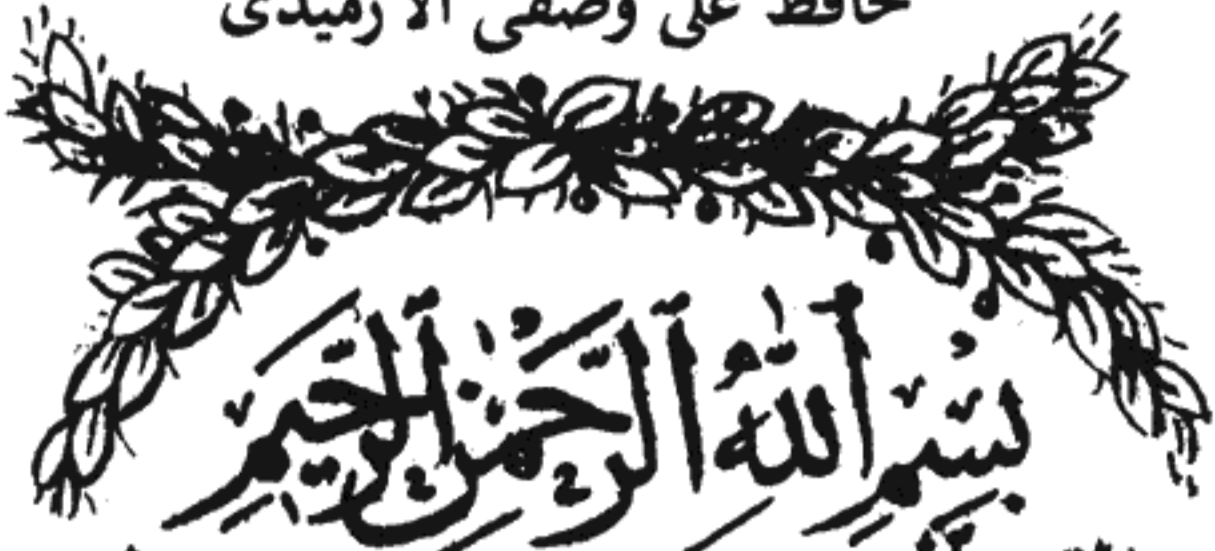 حافظ على وصفى الارميدى
بِسْمِ اللَّهِ الرَّحْمَنِ الرَّحِيمِ